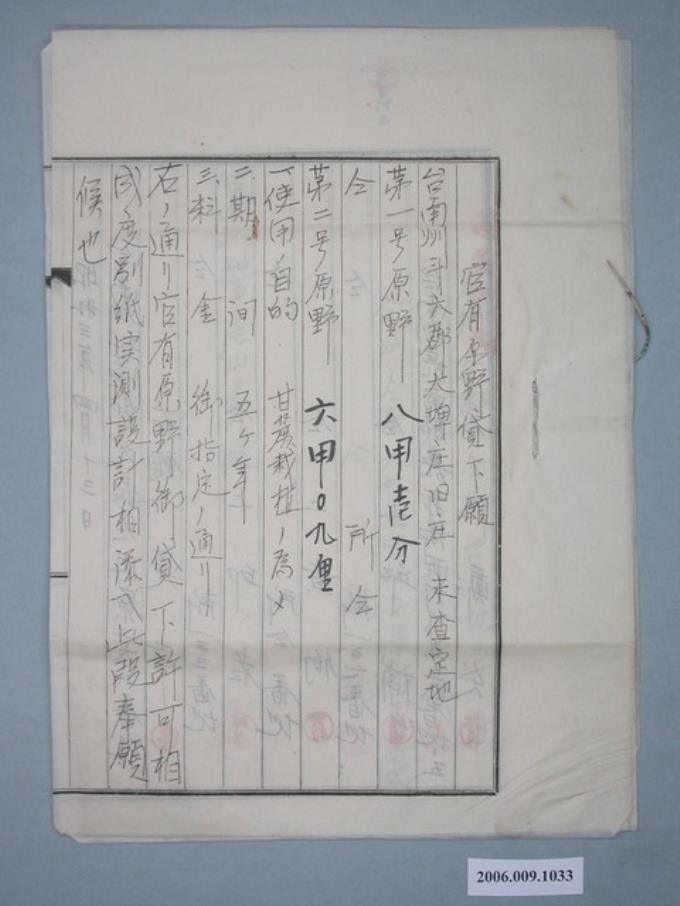 官有原野貸下願
台南州斗六郡大埤庄旧庄 未査定地
第一号原野 八甲壱分
仝 所 仝
第二号原野 六甲0九厘
一、使用ノ目的 甘蔗栽植ノ為メ
二、期 间 五ヶ年
三、料 金 御指定ノ通リ
右ノ通リ官有原野御貸下許可相
成度別紙実測設計相添ヘ此段奉願
候也
2006.009.1033